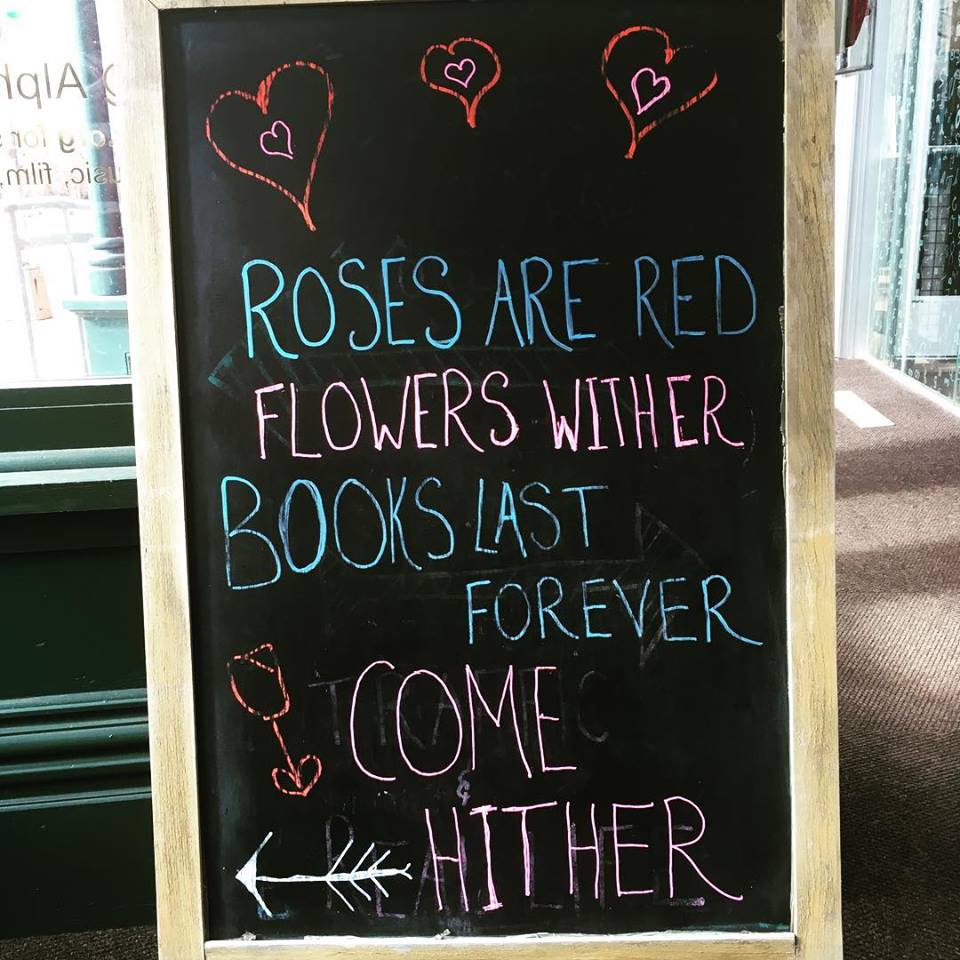 ROSES ARE RED
FLOWERS WITHER
BOOKS LAST
FOREVER
COME
&
HITHER
Alph
music, film,